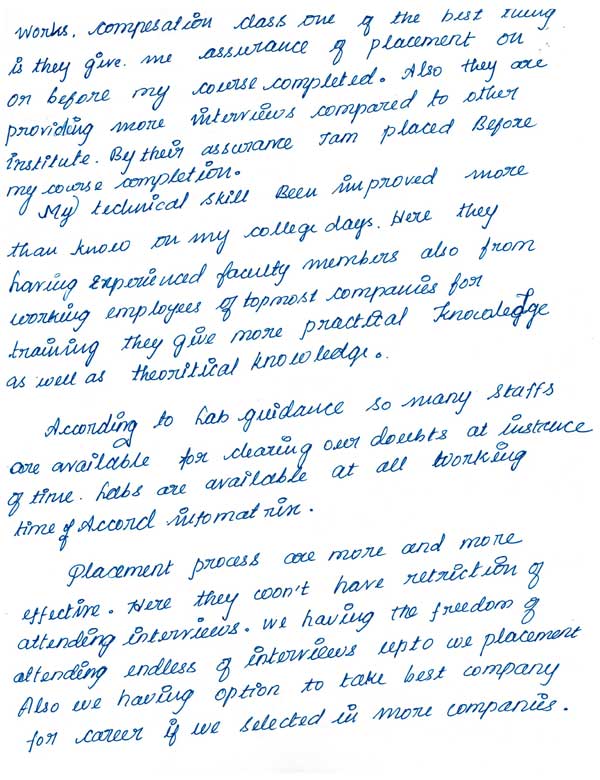 works. compesation class one of the best thing
is they give. me assurance of placement on
or before my course completed. Also they are
providing more interviews compared to other
institute. By their assurance Iam placed Before
my course completion.
My technical skill Been improved more
than know on my college days. Here they
having Experienced faculty members also from
working employees of topmost companies for
training they give more practical knowledge
as well as theoritical knowledge.
According to Lab guidance so many staffs
are available for clearing our doubts at instance
of time. Labs are available at all working
time of Accord infomatrix.
Placement process are more and more
effective. Here they won't have retriction of
attending interviews. we having the freedom of
attending endless of interviews upto we placement
Also we having option to take best company
for career if we selected in more companies.